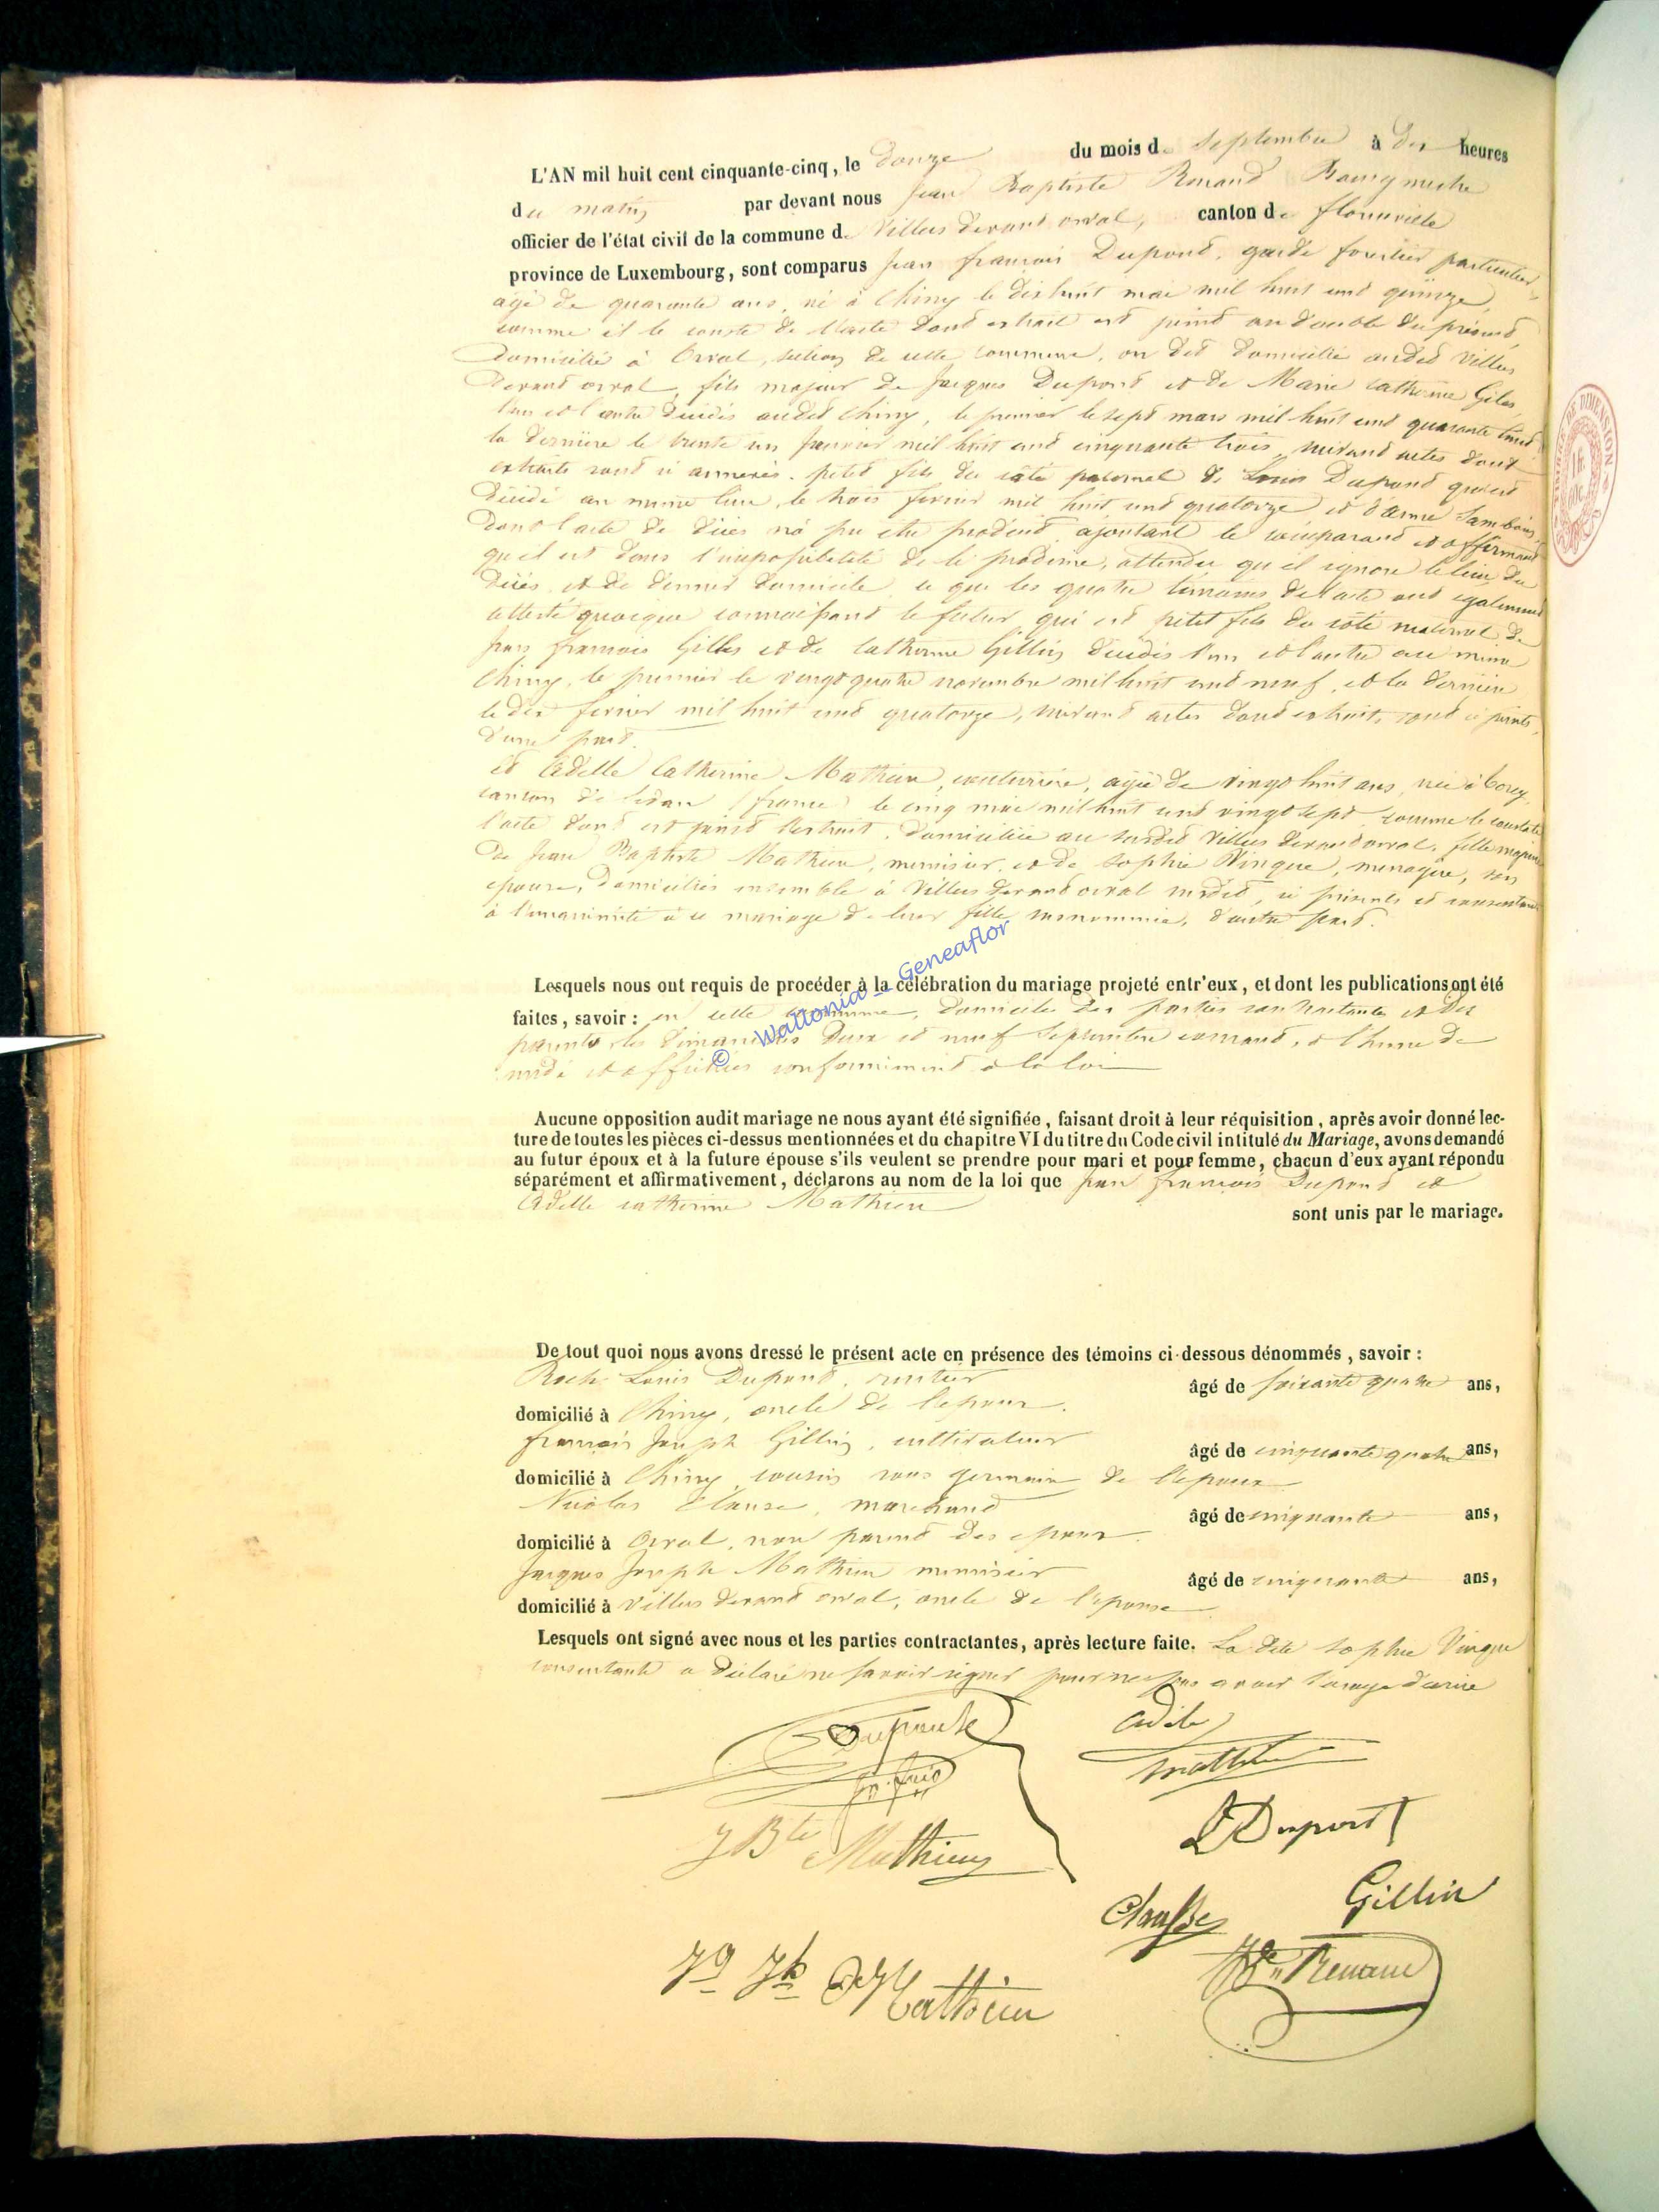 L'AN mil huit cent cinquante-cinq, le douze du mois de septembre à dix heures
du matin par devant nous Jean Baptiste Renaud Bourgmestre
officier de l'état civil de la commune de Villers devant orval, canton de florenville
province de Luxembourg, sont comparus Jean françois Dupond, garde forestier particulier,
agé de quarante ans, né à Chiny le dix huit mai mil huit cent quinze,
comme il le conste de l'acte dont extrait est joint au double du présent,
domicilié à Orval, section de cette commune, on dit domicilié audit Villers
devant orval, fils majeur de Jacques Dupond et de Marie Catherine Giles,
l'un et l'autre décédés audit Chiny, le premier le sept mars mil huit cent quarante
la dernière le trente un janvier mil huit cent cinquante trois, suivant actes dont
extraits sont ci annexés. petit fils du côté paternel de Louis Dupond
décédé au même lieu, le trois fevrier mil huit cent quatorze et d'anne
dont l'acte de décès n'a pu être produit, ajoutant le comparant et affirmant
qu'il est dans l'impossibilité de le produire, attendu qu'il ignore le lieu du
décès et de dernier domicile, ce que les quatre témoins de l'acte ont egalement
attesté quoique connaissant le futur, qui est petit fils du côté maternel de
Jean françois Gilles et de Catherine Gillin, décédés l'un et l'autre au même
Chiny, le premier le vingt quatre novembre mil huit cent neuf, et la dernière
le dix fevrier mil huit cent quatorze, suivant actes dont extraits sont ci joints,
d'une part.
Et Adelle Catherine Mathieu, couturière, agée de vingt huit ans, née à
canton de Sedan (france) le cinq mai mil huit cent vingt sept, comme le constate
l'acte dont est joint l'extrait, domiciliée au susdit Villers devant orval, fille majeure
de Jean Baptiste Mathieu, menuisier, et de Sophie Vinque, menagère, son
épouse, domiciliés ensemble à Villers devant orval susdit, ci présents et consentants
à l'unanimité à ce mariage de leur fille susnommée, d'autre part.
Lesquels nous ont requis de procéder à la célébration du mariage projeté entr'eux, et dont les publications ont été
faites, savoir : en cette commune, domicile des parties contractantes et des
parents, les dimanches deux et neuf septembre courant, à l'heure de
midi et affichées conformément à la loi
© Wallonia - Geneaflor
Aucune opposition audit mariage ne nous ayant été signifiée, faisant droit à leur réquisition, après avoir donné lec-
ture de toutes les pièces ci-dessus mentionnées et du chapitre VI du titre du Code civil intitulé du Mariage, avons demandé
au futur époux et à la future épouse s'ils veulent se prendre pour mari et pour femme, chacun d'eux ayant répondu
séparément et affirmativement, déclarons au nom de la loi que Jean françois Dupond et
Adelle catherine Mathieu
sont unis par le mariage.
De tout quoi nous avons dressé le présent acte en présence des témoins ci-dessous dénommés, savoir :
Roch Louis Dupond, rentier âgé de soixante quatre ans,
domicilié à Chiny, oncle de l'epoux.
françois Joseph Gillin, cultivateur âgé de cinquante quatre ans,
domicilié à Chiny, cousin sous germain de l'époux
Nicolas Clausse, marchand âgé de cinquante ans,
domicilié à Orval, non parent des epoux
Jacques Joseph Mathieu menuisier âgé de cinquante ans,
domicilié à Villers devant orval, oncle de l'épouse
Lesquels ont signé avec nous et les parties contractantes, après lecture faite. La dite Sophie Vinque
consentante a déclaré ne savoir signer pour ne pas avoir l'usage d'écrire
Adele
Mathieu
L Dupont
J Bte Mathieu
Gillin
Clausse
Jq Jh Mathieu
JBte Renaud